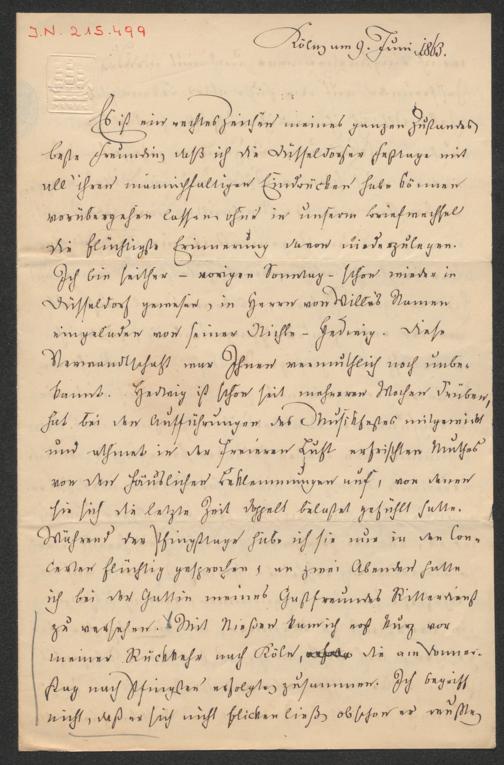 J.N. 215.499
Köln, am 9. Juni 1863.
Es ist ein rechtes Zeichen meines ganzen Zustandes,
beste Freundin, daß ich die Düsseldorfer Festtage mit
all' ihren mannichfaltigen Eindrücken habe können
vorübergehen lassen, ohne in unserm Briefwechsel
die flüchtigste Erinnerung davon niederzulegen.
Ich bin seither – vorigen Sonntag – schon wieder in
Düsseldorf gewesen, in Herrn von Wille's Namen
eingeladen von seiner Nichte – Hedwig. Diese
Verwandtschaft war Ihnen vermuthlich noch unbe-
kannt. Hedwig ist schon seit mehreren Wochen drüben,
hat bei den Aufführungen des Musikfestes mitgewirkt
und athmet in der freieren Luft erfrischten Muthes
von den häuslichen Beklemmungen auf, von denen
sie sich die letzte Zeit doppelt belastet gefühlt hatte.
Während der Pfingsttage habe ich sie nur in den Con-
certen flüchtig gesprochen, an zwei Abenden hatte
ich bei der Gattin meines Gastfreundes Ritterdienst
zu versehen. Mit Nießen kam ich noch kurz vor
meiner Rückkehr nach Köln, die am Donners-
tag nach Pfingsten erfolgte, zusammen. Ich begriff
nicht, daß er sich nicht blicken ließ, obschon er wußte,